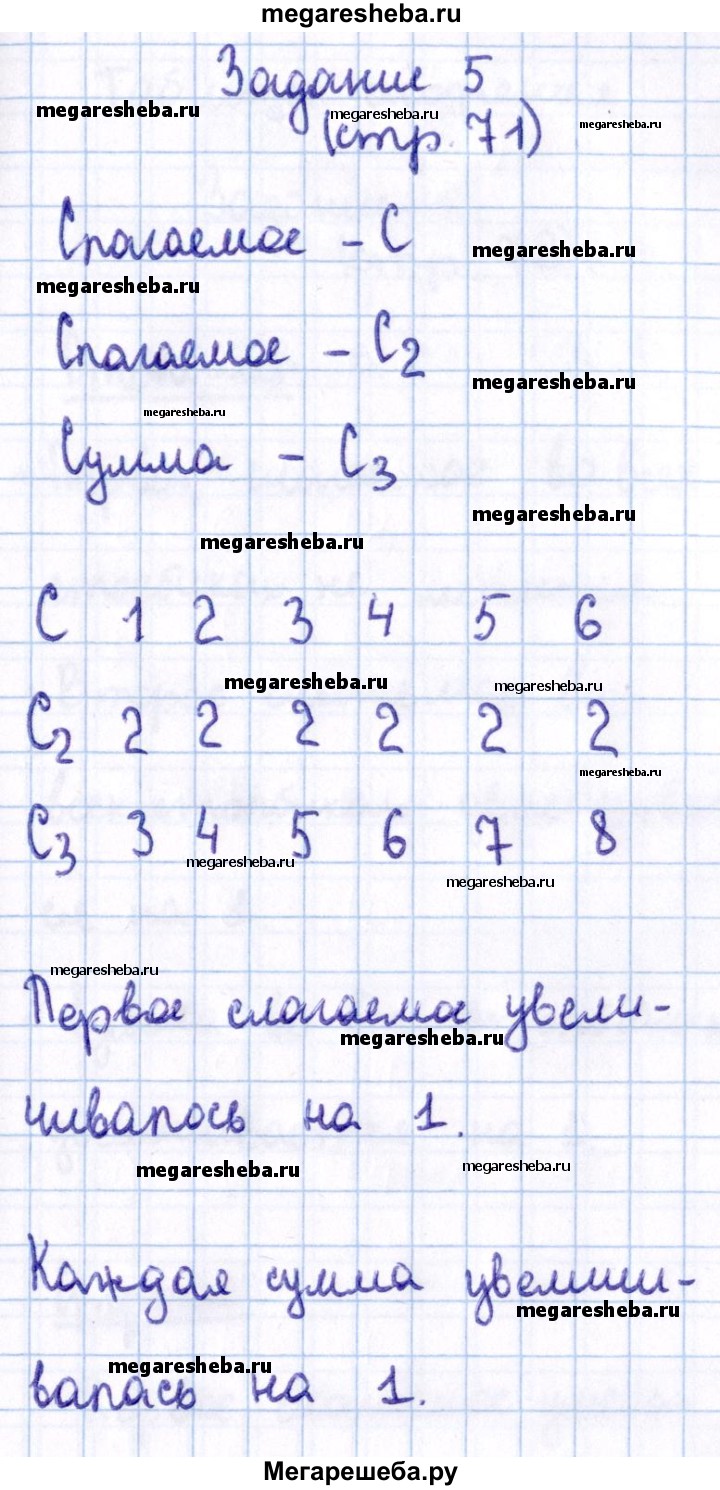 megaresheba.ru
Задание 5
megaresheba.ru megaresheba.ru megaresheba.ru
(стр. 71)
Слагаемое - С
megaresheba.ru
megaresheba.ru
Слагаемое - С2
megaresheba.ru
megaresheba.ru
Сумма - С3
megaresheba.ru
megaresheba.ru
С 1 2 3 4 5 6
megaresheba.ru megaresheba.ru
С2 2 2 2 2 2 2
megaresheba.ru
С3 3 4 5 6 7 8
megaresheba.ru
megaresheba.ru
megaresheba.ru
Первое слагаемое увели-
megaresheba.ru
чивалось на 1.
megaresheba.ru megaresheba.ru
Каждая сумма увеличи-
megaresheba.ru
megaresheba.ru
валась на 1.
Мегарешеба.ру